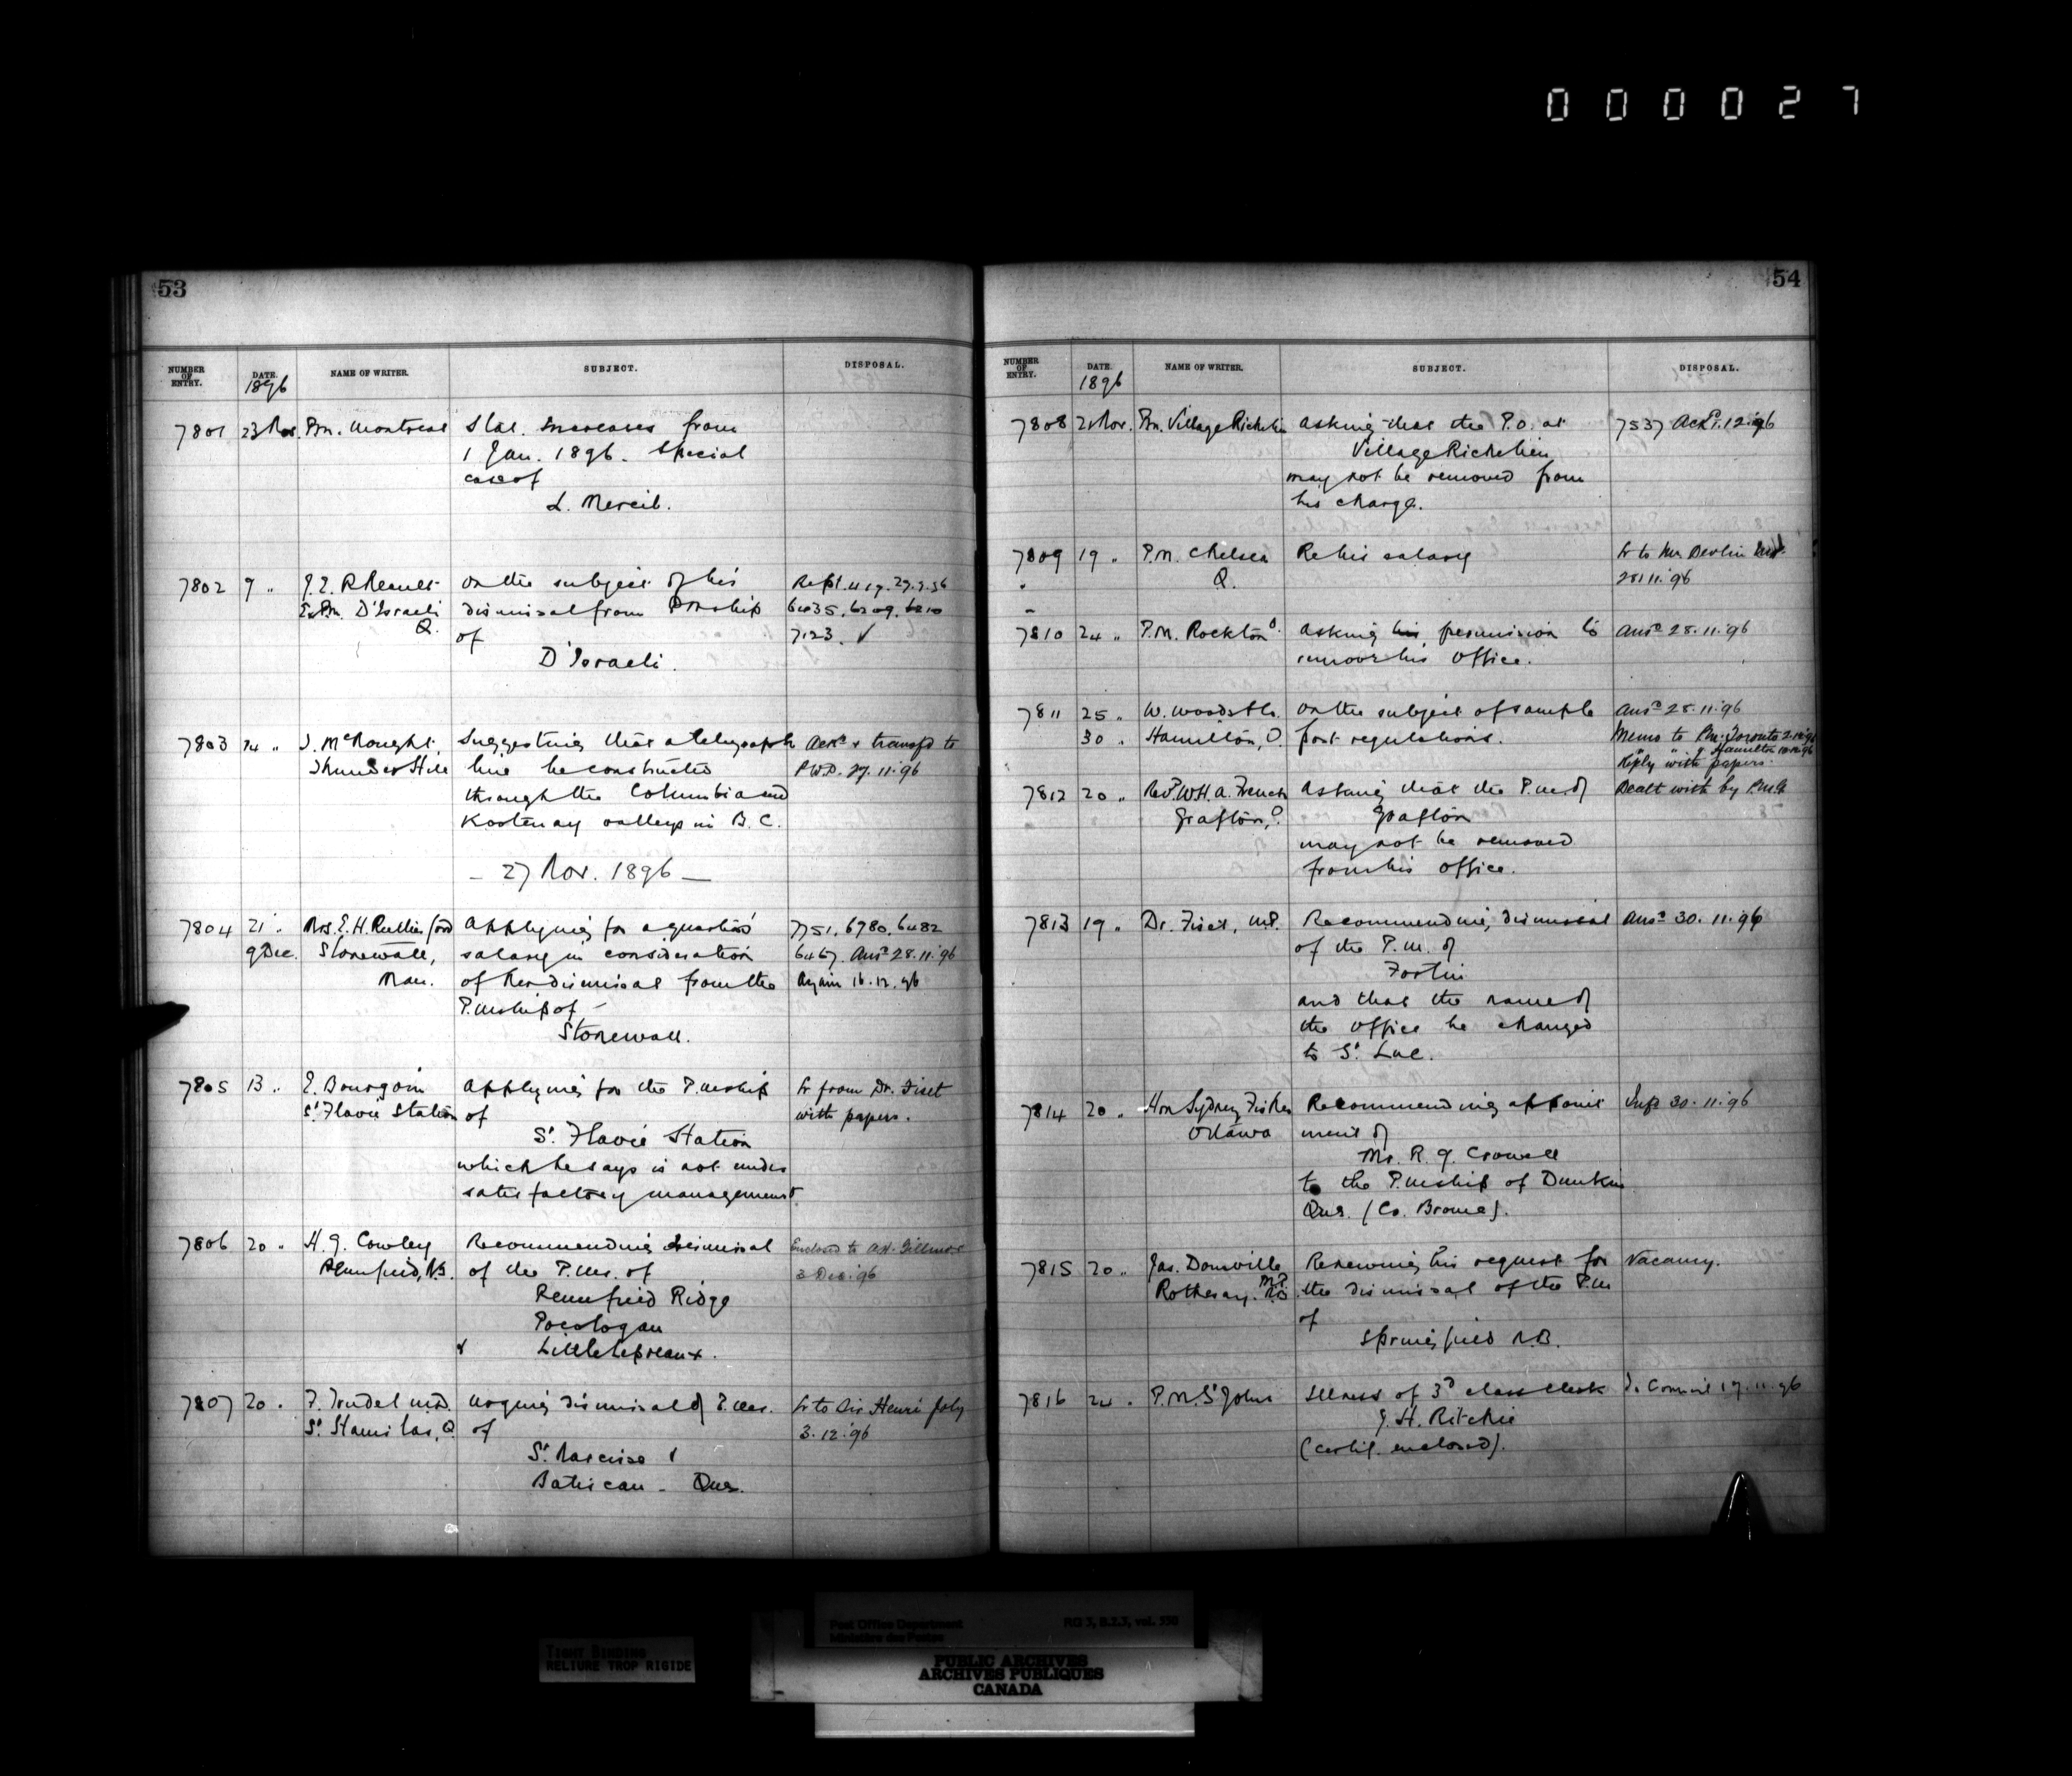 000027
53
NUMBER OF ENTRY. DATE. NAME OF WRITER. SUBJECT. DISPOSAL.
1896
7801 23 Nov. Pm. Montreal Stat. Increases from
1 Jan. 1896. Special
case of
L. Mercil.
7802 9 " J. E. Rheault on the subject of his Rept. 27.9.96
Ex Pm. D'Israeli dismissal from Pmship 6435. 6209. 6210
Q. of 7123. ✓
D'Israeli.
7803 14 " J. McNought, Suggesting that a telegraph Ack'd & transf'd to
Thunder Hill line be constructed P.W.D. 27.11.96
through the Columbia and
Kootenay valleys in B.C.
- 27 Nov. 1896 -
7804 21 " Mrs. E. H. Rutherford Applying for a quarter's 7751, 6780, 6482
9 Dec. Stonewall, salary in consideration 6467. Ans'd 28.11.96
Man. of her dismissal from the Again 16.12.96
P.mship of -
Stonewall.
7805 13 " E. Bourgoin Applying for the P.mship Lr from Dr. Fiset
St. Flavie Station of with papers.
St. Flavie Station
which he says is not under
satisfactory management.
7806 20 " H. G. Cowley Recommending dismissal Enclosed to A.H. Gillmor
Pennfield, N.B. of the P.Ms. of 3 Dec. '96
Pennfield Ridge
Pocologan
& Little Lepreaux.
7807 20 " F. Trudel M.D. Urging dismissal of P.Ms. Lr to Sir Henri Joly
St. Stanislas, Q. of 3.12.96
St. Narcisse &
Batiscan - Que.
54
NUMBER OF ENTRY. DATE. NAME OF WRITER. SUBJECT. DISPOSAL.
1896
7808 21 Nov. Pm. Village Richelieu Asking that the P.O. at 7537 Ack'd 1.12.96
Village Richelieu
may not be removed from
his charge.
7809 19 " P.M. Chelsea Re his salary Lr to Mr Devlin M.P.
Q. 28.11.96
7810 24 " P.M. Rockton O. Asking his permission to Ans'd 28.11.96
remove his office.
7811 25 " W. Woods & Co. On the subject of sample Ans'd 28.11.96
30 " Hamilton, O. post regulations. Memo to Pm. Toronto 2.12.96
" " " Hamilton 10.12.96
Reply with papers.
7812 20 " Rev'd. W.H.A. French Asking that the P.M. of Dealt with by P.M.G
Grafton, O. Grafton
may not be removed
from his office.
7813 19 " Dr. Fiset, M.P. Recommending dismissal Ans'd 30.11.96
of the P.M. of
Fortin
and that the name of
the office be changed
to St. Luc.
7814 20 " Hon Sydney Fisher Recommending appoint Inf'd 30.11.96
Ottawa ment of
Mr. R. G. Crowell
to the P.mship of Dunkin
Que. (Co. Brome).
7815 20 " Jas. Domville Renewing his request for Vacancy.
M.P.
Rothesay. N.B. the dismissal of the P.M
of
Springfield N.B.
7816 24 " P.M. St John Illness of 3d class clerk To Council 17.11.96
J. H. Ritchie
(certif. enclosed).
Post Office Department RG 3, B.2.3, vol. 550
Ministère des Postes
TIGHT BINDING
RELIURE TROP RIGIDE
PUBLIC ARCHIVES
ARCHIVES PUBLIQUES
CANADA